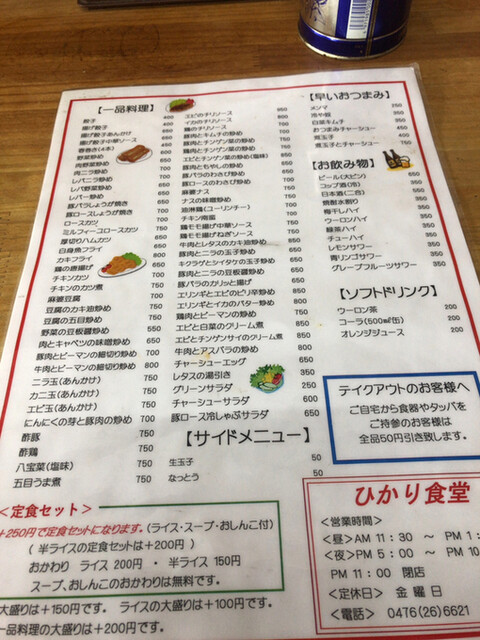 【一品料理】
餃子
揚げ餃子
揚げ餃子あんかけ
揚げ餃子中華ソース
春巻き(4本)
野菜炒め
肉野菜炒め
肉ニラ炒め
レバニラ炒め
レバ野菜炒め
レバー炒め
豚バラしょうが焼き
豚ロースしょうが焼き
ロースカツ
ミルフィーユロースカツ
厚切りハムカツ
白身魚フライ
カキフライ
鶏の唐揚げ
チキンカツ
チキンのカツ煮
麻婆豆腐
豆腐のカキ油炒め
豆腐の五目炒め
野菜の豆板醤炒め
肉とキャベツの味噌炒め
豚肉とピーマンの細切り炒め
牛肉とピーマンの細切り炒め 800
ニラ玉(あんかけ) 750
カニ玉(あんかけ) 750
エビ玉(あんかけ) 750
にんにくの芽と豚肉の炒め 700
酢豚 750
酢鶏 750
八宝菜(塩味) 750
五目うま煮 750
エビのチリソース
イカのチリソース
鶏のチリソース
豚肉とキムチの炒め
豚肉とチンゲン菜の炒め
鶏肉とチンゲン菜の炒め
エビとチンゲン菜の炒め(塩味)
豚肉ともやしの炒め
豚バラのわさび炒め
豚ロースのわさび炒め
麻婆ナス
ナスの味噌炒め
油淋鶏(ユーリンチー)
チキン南蛮
鶏モモ揚げ中華ソース
鶏モモ揚げねぎソース
牛肉とレタスのカキ油炒め
豚肉とニラの玉子炒め
キクラゲとシイタケの玉子炒め
豚肉とニラの豆板醤炒め
豚バラのカリッと揚げ
エリンギとエビのピリ辛炒め
エリンギとイカのバター炒め
鶏肉とピーマンの炒め
エビと白菜のクリーム煮
エビとチンゲンサイのクリーム煮
牛肉とアスパラの炒め
チャーシューエッグ
レタスの湯引き
グリーンサラダ
チャーシューサラダ
豚ロース冷しゃぶサラダ
【サイドメニュー】
生玉子 50
なっとう 50
【早いおつまみ】
メンマ 250
冷や奴
白菜キムチ
おつまみチャーシュー
煮玉子
煮玉子とチャーシュー
【お飲み物】
ビール(大ビン) 650
コップ酒(冷) 350
日本酒(二合)
焼酎水割り
梅干しハイ
ウーロンハイ 350
緑茶ハイ 350
チューハイ 350
レモンサワー 350
青リンゴサワー 350
グレープフルーツサワー 350
【ソフトドリンク】
ウーロン茶
コーラ(500㎖缶)
オレンジジュース
テイクアウトのお客様へ
ご自宅から食器やタッパを
ご持参のお客様は
全品50円引き致します。
<定食セット>
+250円で定食セットになります。(ライス・スープ・おしんこ付)
( 半ライスの定食セットは+200円 )
おかわり ライス 200円 ・ 半ライス 150円
スープ、おしんこのおかわりは無料です。
大盛りは+150円です。 ライスの大盛りは+100円です。
一品料理の大盛りは+200円です。
ひかり食堂
<営業時間>
<昼>AM 11:30 ～ PM 1:
<夜>PM 5:00 ～ PM 10
PM 11:00 閉店
<定休日> 金 曜 日
<電話> 0476(26)6621